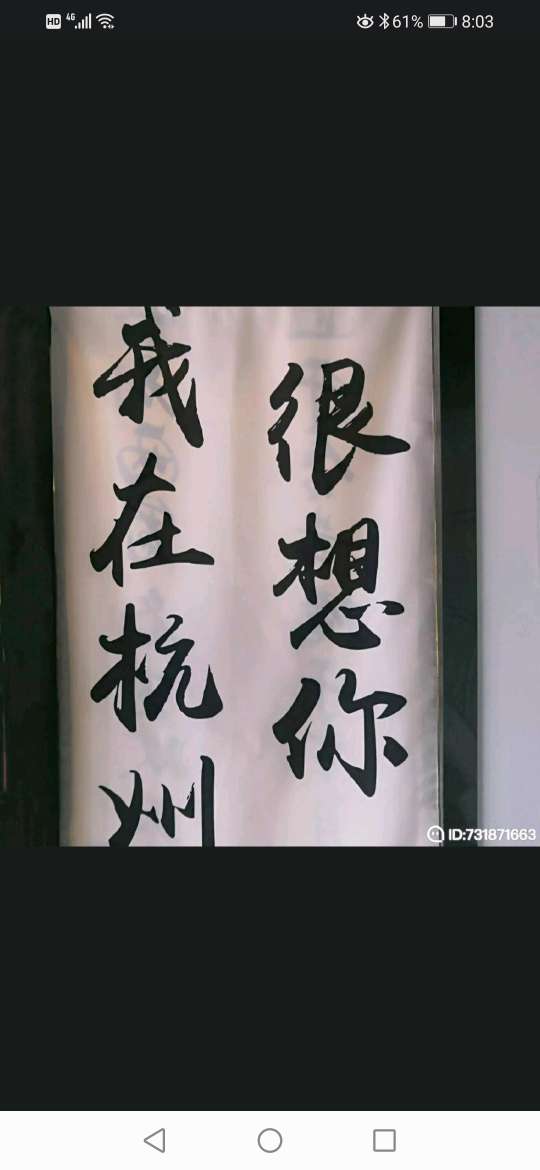 HD 4G 61% 8:03
我在杭州
很想你
ID:731871663